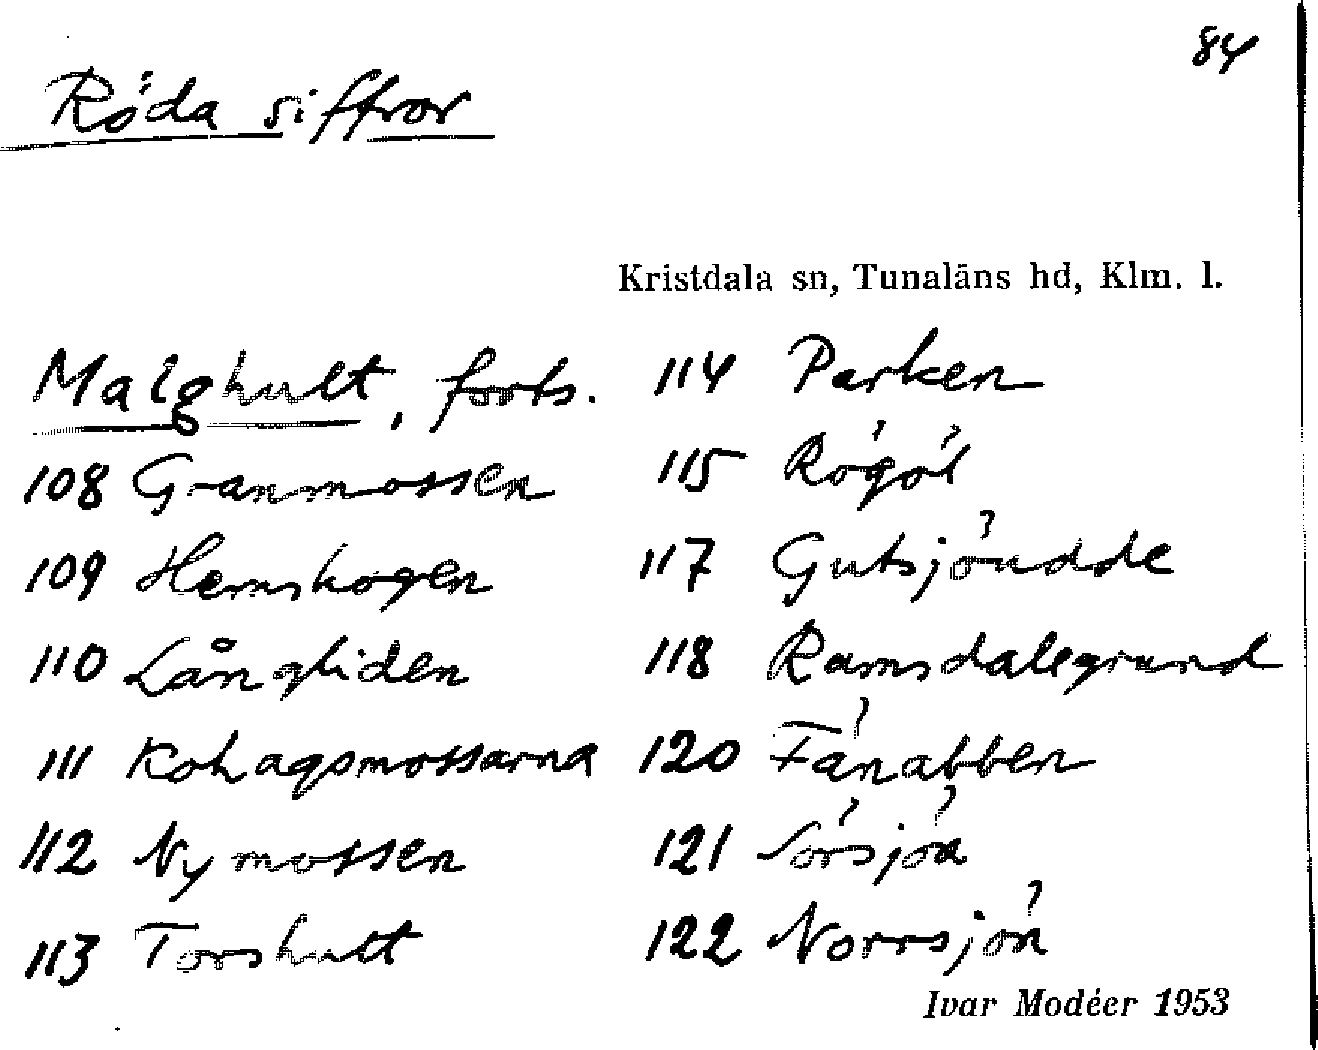 84
Röda siffror
Kristdala sn, Tunaläns hd, Klm. l.
Malghult, forts.
108 Granmossen
109 Hemskogen
110 Långliden
111 Kohagsmossarna
112 Nymossen
113 Torshult
114 Parken
115 Rögöl
117 Gutsjöudde
118 Ramsdalegrund
120 Fånabben
121 Sörsjön
122 Norrsjön
Ivar Modéer 1953